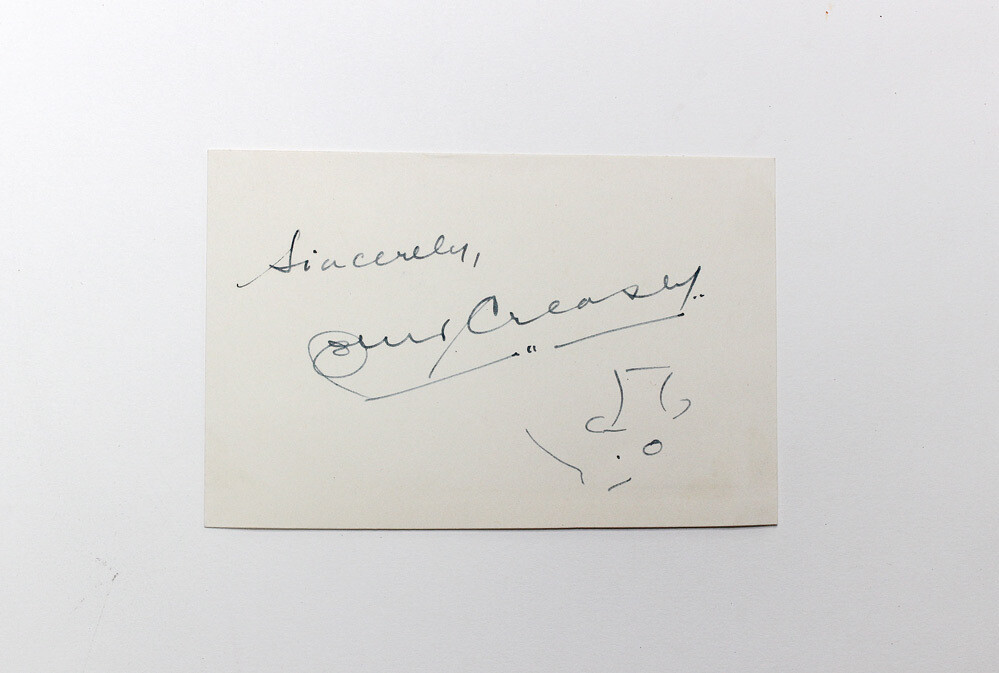 Sincerely,
Creasey